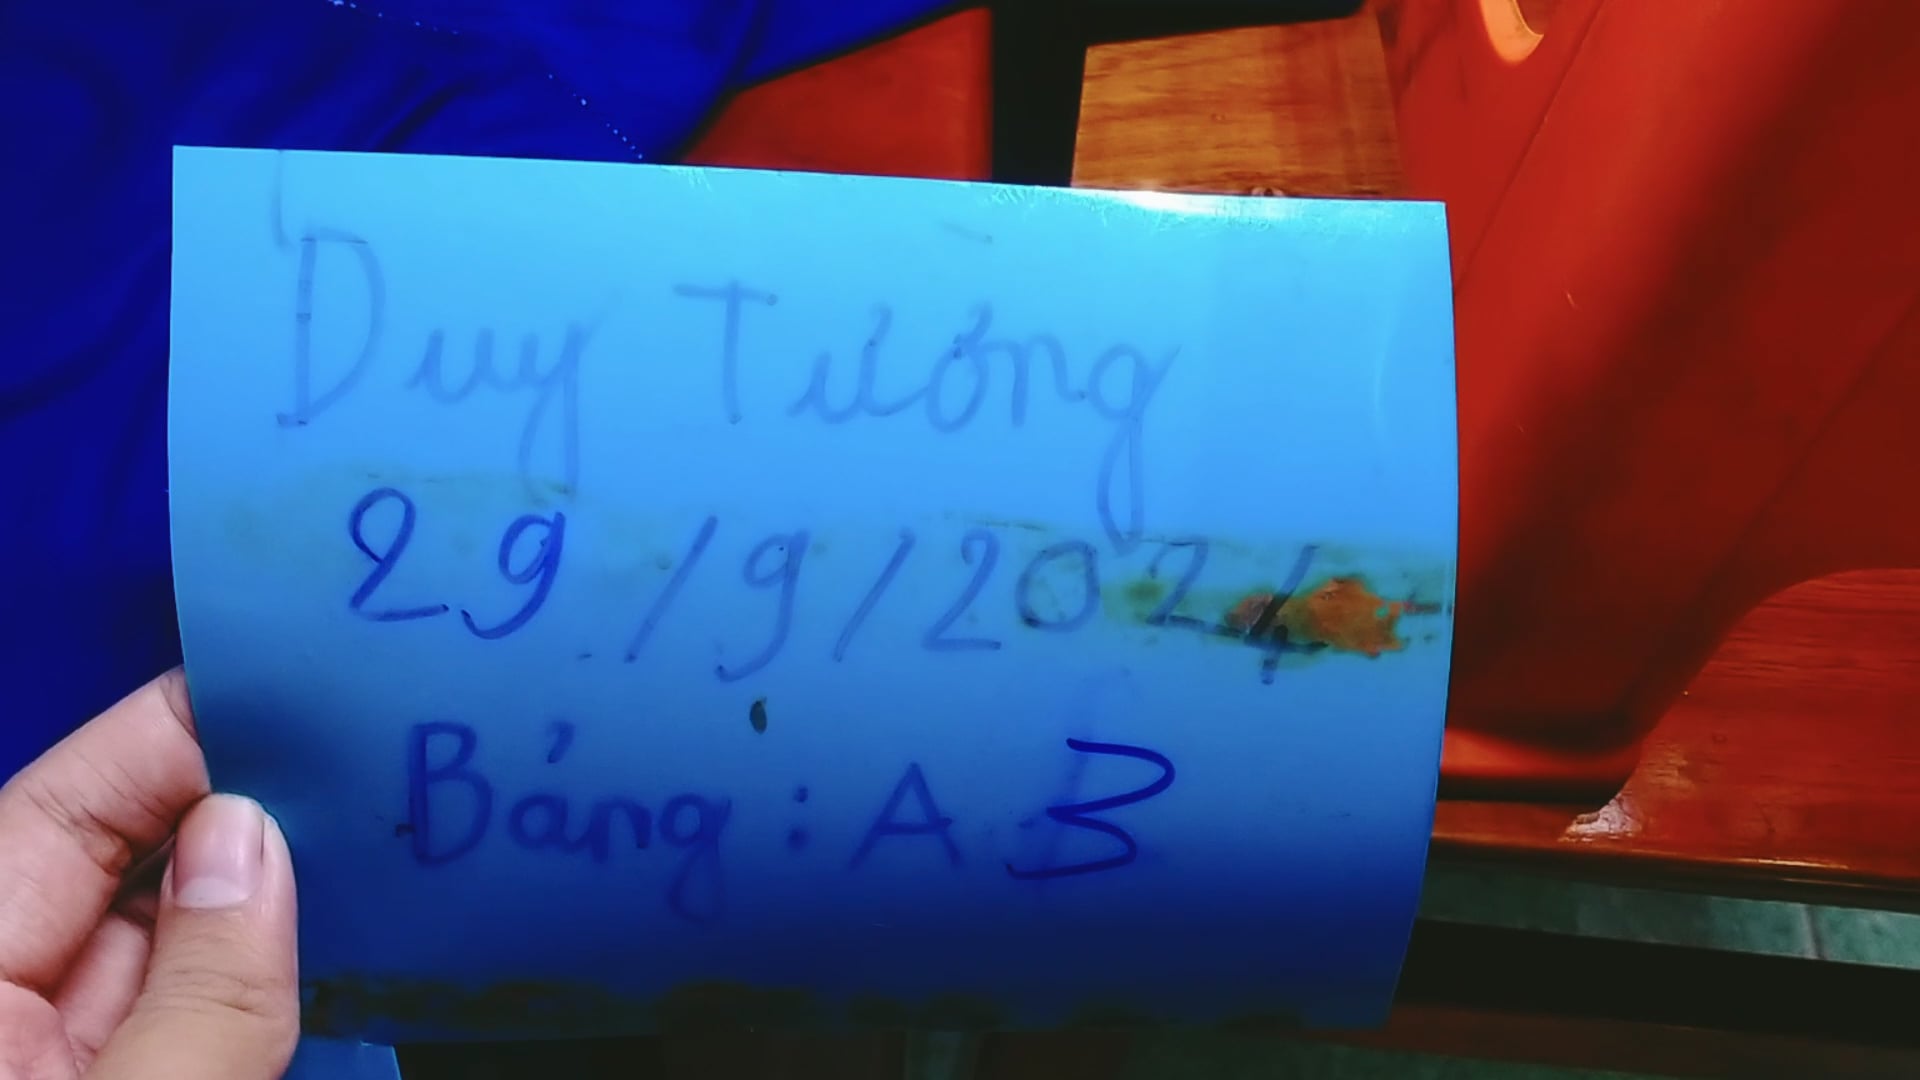 Duy Tường
29/9/2024
Bảng: A3